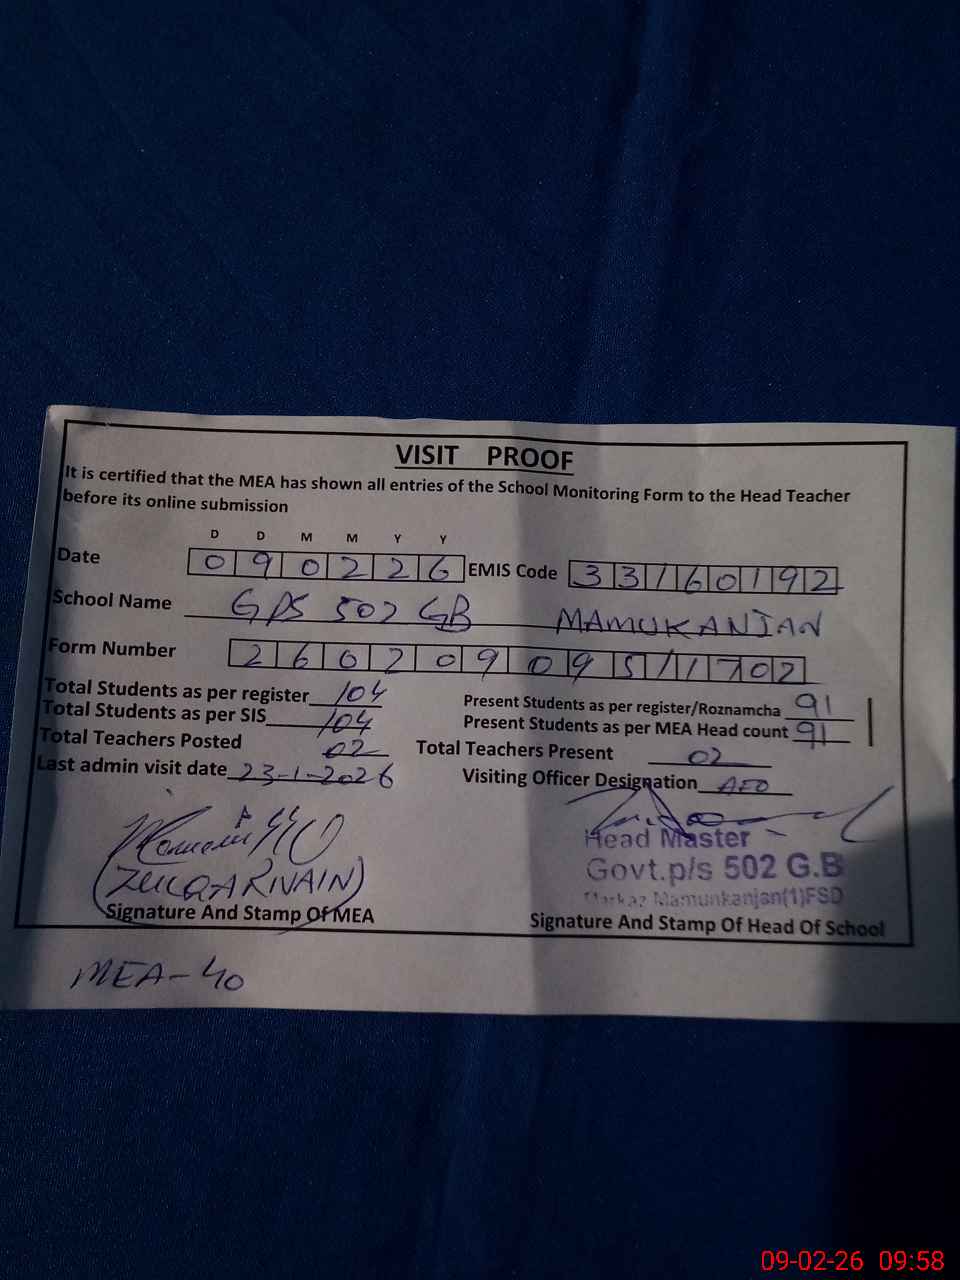 VISIT PROOF
It is certified that the MEA has shown all entries of the School Monitoring Form to the Head Teacher
before its online submission
D D M M Y Y
Date 090226 EMIS Code 33160192
School Name GPS 502 GB MAMUKANJAN
Form Number 26020909511702
Total Students as per register 104 Present Students as per register/Roznamcha 91
Total Students as per SIS 104 Present Students as per MEA Head count 91
Total Teachers Posted 02 Total Teachers Present 02
Last admin visit date 23-1-2026 Visiting Officer Designation AEO
(ZULQARNAIN)
Head Master
Govt.p/s 502 G.B
Markaz Mamunkanjan(1)FSD
Signature And Stamp Of MEA Signature And Stamp Of Head Of School
MEA-40
09-02-26 09:58